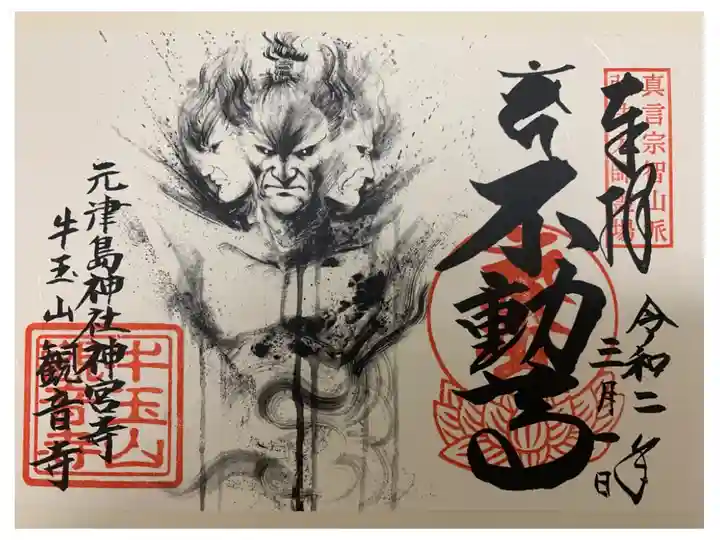 真言宗智山派
奉拝
令和二年
三月一日
不動尊
元津島神社神宮寺
牛玉山観音寺
牛玉山
観音寺